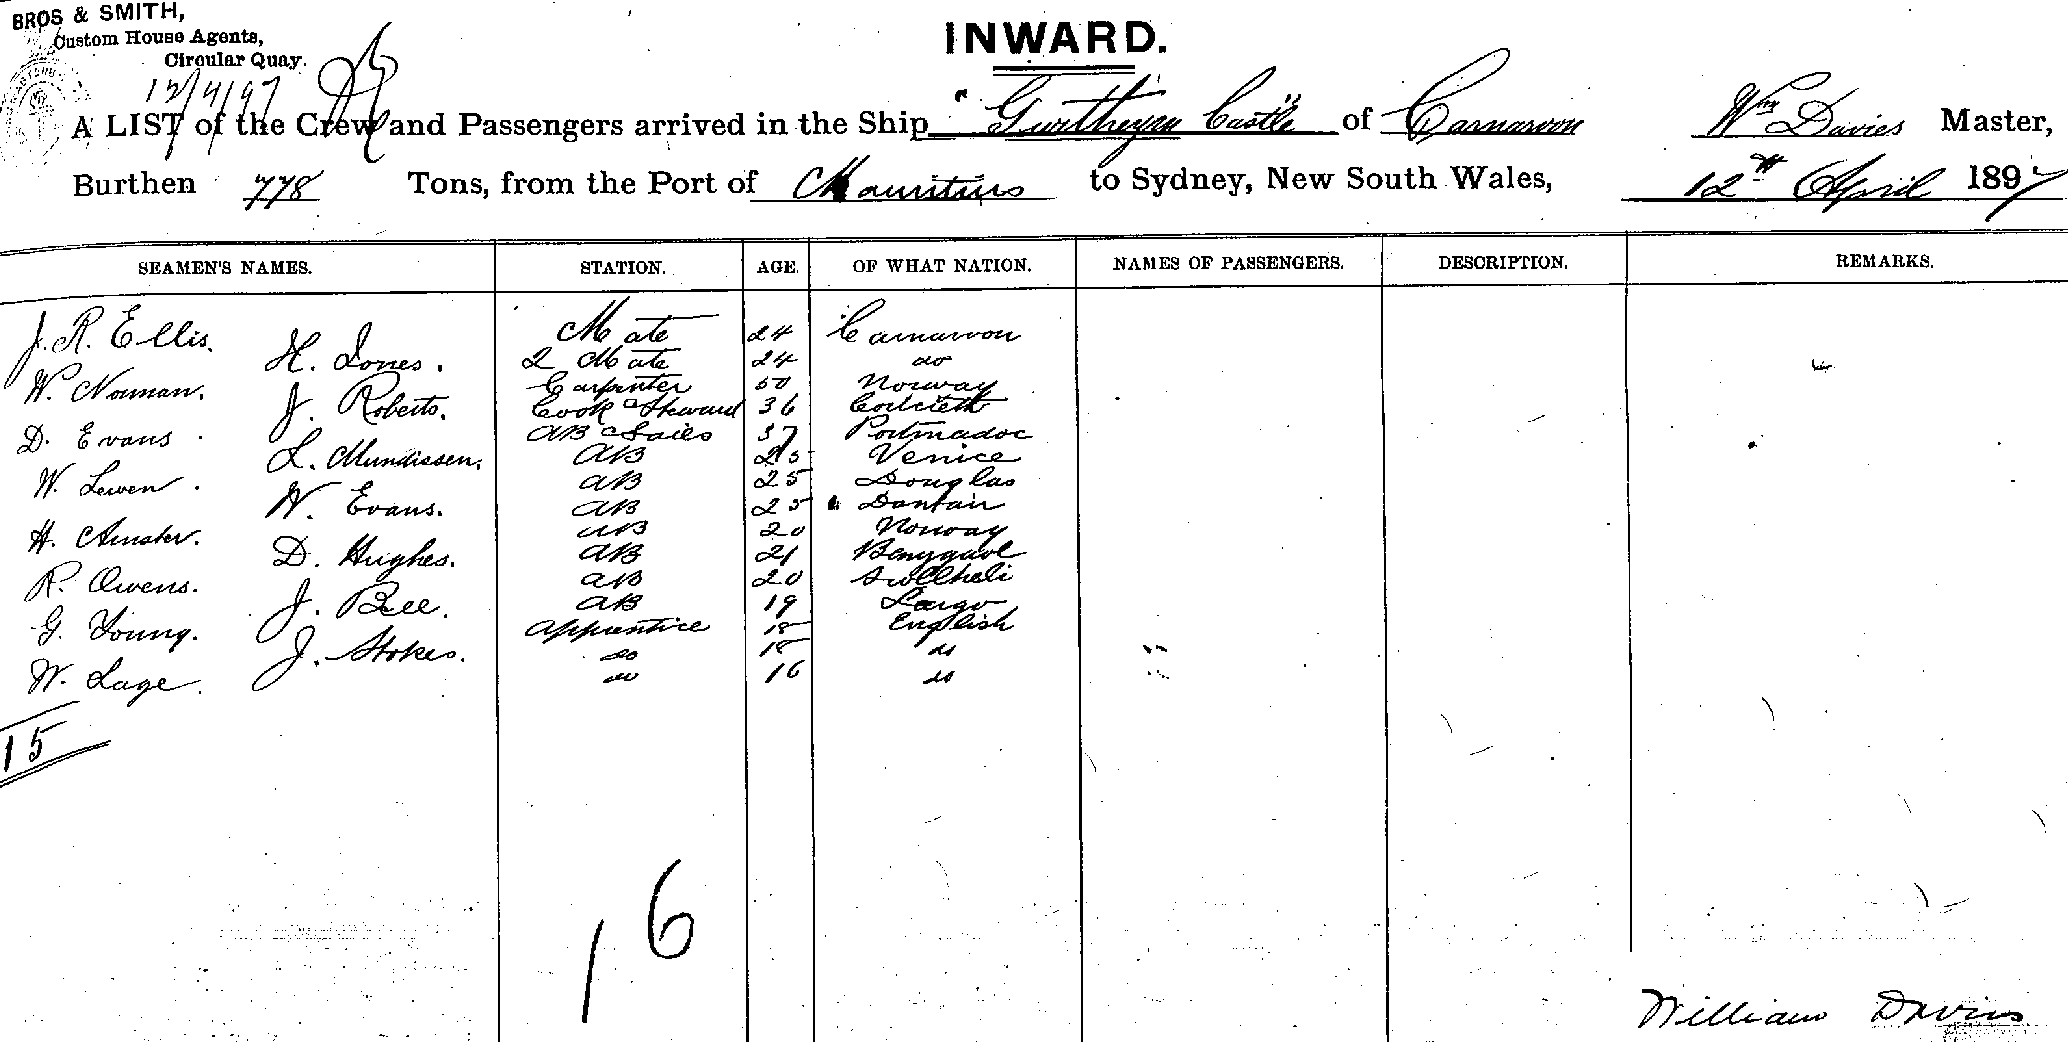 BROS & SMITH,
Custom House Agents,
Circular Quay.
12/4/97
INWARD.
A LIST of the Crew and Passengers arrived in the Ship "Gwrtheyrn Castle" of Carnarvon Wm Davies Master,
Burthen 778 Tons, from the Port of Mauritius to Sydney, New South Wales, 12th April 1897
SEAMEN'S NAMES. STATION. AGE. OF WHAT NATION. NAMES OF PASSENGERS. DESCRIPTION. REMARKS.
J. R. Ellis. Mate 24 Carnarvon
H. Jones. 2 Mate 24 do
W. Norman. Carpenter 50 Norway
J. Roberts. Cook & Steward 36 Criccieth
D. Evans. AB & Sails 37 Portmadoc
L. Mundissen. AB 25 Venice
W. Lewen. AB 25 Douglas
W. Evans. AB 25
H. AB 20 Norway
D. Hughes. AB 21
R. Owens. AB 20 Pwllheli
J. Bell. AB 19 Largo
G. Young. Apprentice 18 English
J. Stokes. do 18 do
W. Lage. do 16 do
15
16
William Davies